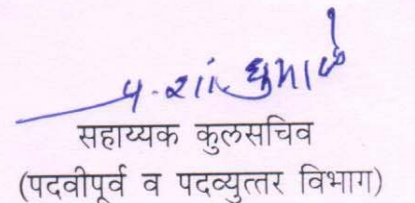 प. शां. घुमाळे
सहाय्यक कुलसचिव
(पदवीपूर्व व पदव्युत्तर विभाग)